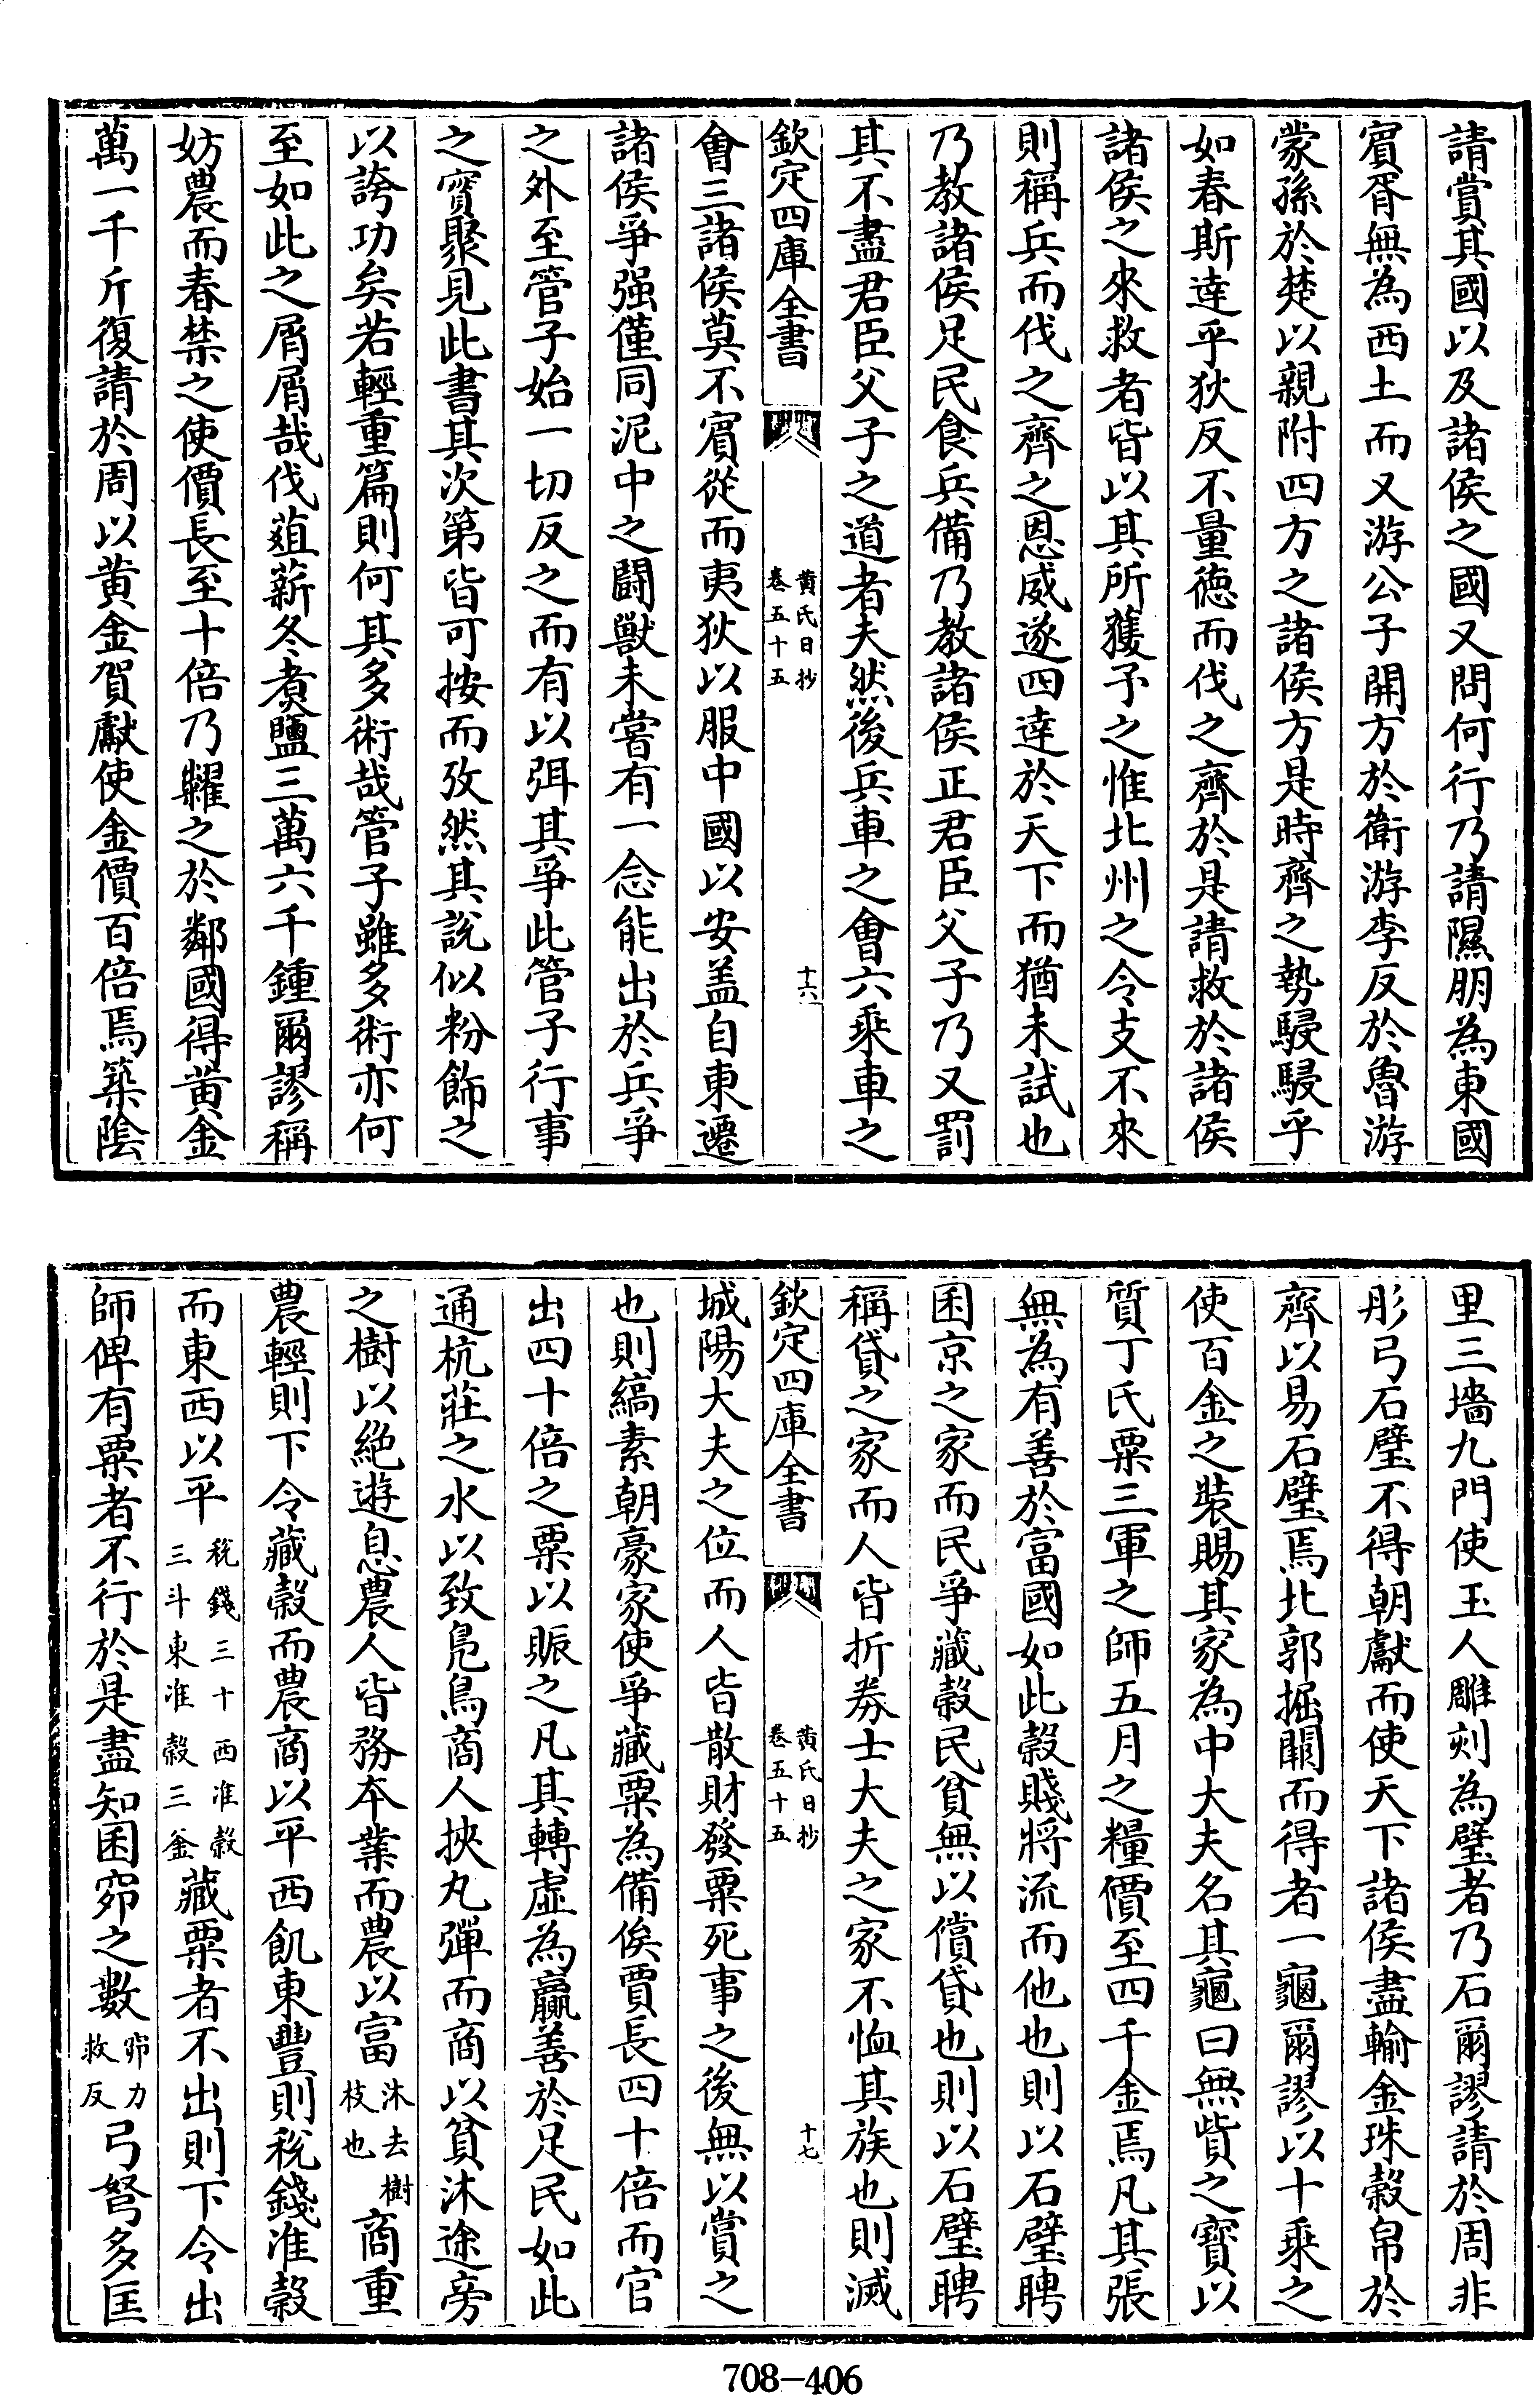 請賞其國以及諸侯之國又問何行乃請隰朋為東國
賓胥無為西土而又游公子開方於衛游李友於魯游
蒙孫於楚以親附四方之諸侯方是時齊之勢駸駸乎
如春斯達乎狄反不量德而伐之齊於是請救於諸侯
諸侯之來救者皆以其所獲予之惟北州之令支不來
則稱兵而伐之齊之恩威遂四達於天下而猶未試也
乃教諸侯足民食兵備乃教諸侯正君臣父子乃又罰
其不盡君臣父子之道者夫然後兵車之會六乘車之
欽定四庫全書
黃氏日抄
卷五十五
十六
會三諸侯莫不賓從而夷狄以服中國以安盖自東遷
諸侯爭强僅同泥中之鬬獸未嘗有一念能出於兵爭
之外至管子始一切反之而有以弭其爭此管子行事
之實聚見此書其次第皆可按而攷然其說似粉飾之
以誇功矣若輕重篇則何其多術哉管子雖多術亦何
至如此之屑屑哉伐葅薪冬煮鹽三萬六千鍾爾謬稱
妨農而春禁之使價長至十倍乃糶之於鄰國得黄金
萬一千斤復請於周以黄金賀獻使金價百倍焉築陰
里三墻九門使玉人雕刻為璧者乃石爾謬請於周非
彤弓石璧不得朝獻而使天下諸侯盡輸金珠穀帛於
齊以易石璧焉北郭掘闕而得者一龜爾謬以十乘之
使百金之裝賜其家為中大夫名其龜曰無貲之寳以
質丁氏粟三軍之師五月之糧價至四千金焉凡其張
無為有善於富國如此穀賤將流而他也則以石璧聘
囷京之家而民爭藏穀民貧無以償貸也則以石璧聘
稱貸之家而人皆折券士大夫之家不恤其族也則滅
欽定四庫全書
黃氏日抄
卷五十五
十七
城陽大夫之位而人皆散財發粟死事之後無以賞之
也則縞素朝豪家使爭藏粟為備俟賈長四十倍而官
出四十倍之粟以賑之凡其轉虛為贏善於足民如此
通杭莊之水以致鳬鳥商人挾丸彈而商以貧沐途旁
之樹以絶遊息農人皆務本業而農以富沐去樹枝也商重
農輕則下令藏穀而農商以平西飢東豐則稅錢准穀
而東西以平稅錢三十西准穀三斗東准穀三釜藏粟者不出則下令出
師俾有粟者不行於是盡知囷窌之數窌力救反弓弩多匡
708—406